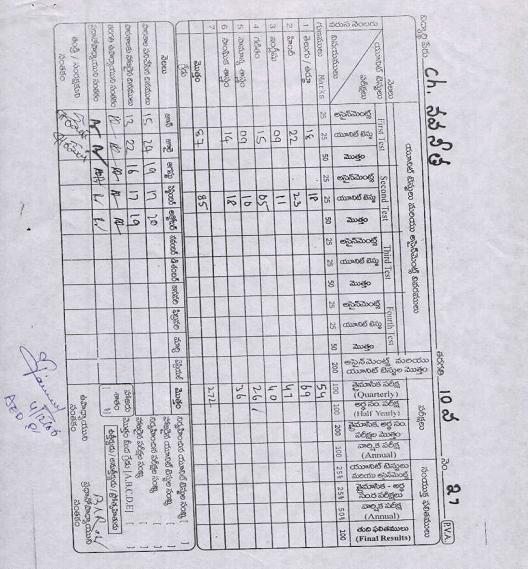 విద్యార్థి పేరు Ch. నవనీత తరగతి 10 వ నెం. 27
యూనిట్ టెస్టులు మరియు అసైన్‌మెంట్స్ వివరములు
పరీక్షలు
సంయుక్త ఫలితములు
నెలలు
యూనిట్ టెస్టులు
పరీక్షలు
విషయములు
వరుస నెంబరు
First Test Second Test Third Test Fourth Test
అసైన్‌మెంట్స్ యూనిట్ టెస్టు మొత్తం
అసైన్‌మెంట్స్ యూనిట్ టెస్టు మొత్తం
అసైన్‌మెంట్స్ యూనిట్ టెస్టు మొత్తం
అసైన్‌మెంట్స్ యూనిట్ టెస్టు మొత్తం
అసైన్‌మెంట్స్ మరియు యూనిట్ టెస్టుల మొత్తం
త్రైమాసిక పరీక్ష (Quarterly)
అర్ధ సం. పరీక్ష (Half Yearly)
త్రైమాసిక, అర్ధ సం. పరీక్షల మొత్తం
వార్షిక పరీక్ష (Annual)
యూనిట్ టెస్టులు మరియు అసైన్‌మెంట్
త్రైమాసిక - అర్ధ సంవ పరీక్షలు
వార్షిక పరీక్ష (Annual)
తుది ఫలితములు (Final Results)
గుణములు Marks 25 25 50 25 25 50 25 25 50 25 25 50 200 100 100 200 100 25% 25% 50% 100
1 తెలుగు / ఉర్దూ 18 18 54
2 హిందీ 22 23 69
3 ఇంగ్లీషు 09 11 47
4 గణితం 15 05 40
5 సామాన్య శాస్త్రం 09 10 26
6 సాంఘిక శాస్త్రం 14 18 36
7
మొత్తం 87 85 272
గ్రేడు
నెలలు జూన్ జూలై ఆగష్టు సెప్టెంబర్ అక్టోబర్ నవంబర్ డిశంబర్ జనవరి ఫిబ్రవరి మార్చి ఏప్రిల్ మొత్తం
పాఠశాల పనిచేసిన దినములు 15 24 19 17 20
హాజరైన దినములు 13 22 16 17 19
తరగతి ఉపాధ్యాయుని సంతకం
ప్రధానోపాధ్యాయుని సంతకం
తండ్రి / సంరక్షకుని సంతకం
హాజరు శాతం
నిర్వహించిన యూనిట్ టెస్టుల సంఖ్య
హాజరైన యూనిట్ టెస్టుల సంఖ్య
నిర్వహించిన పరీక్షల సంఖ్య
హాజరైన పరీక్షల సంఖ్య
మొత్తం మీద గ్రేడు [A,B,C,D,E]
ఉపాధ్యాయుని సంతకం
ప్రధానోపాధ్యాయుని సంతకం